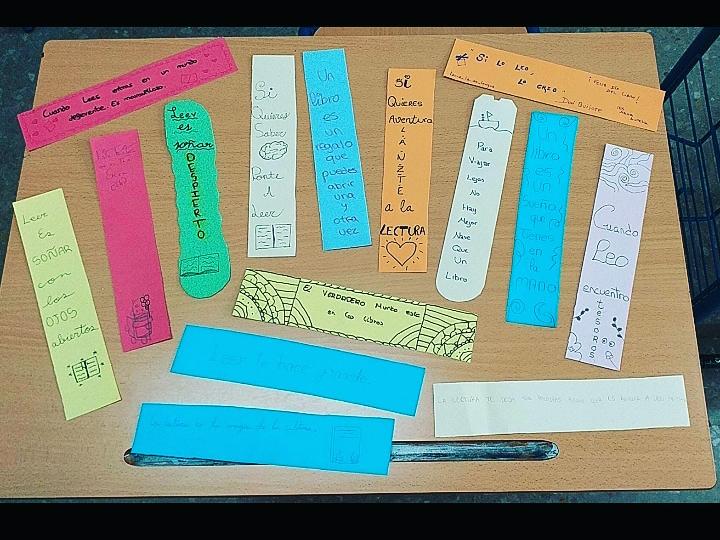 Cuando lees entras en un mundo
diferente. Es maravilloso.
Leer
es
soñar
DESPIERTO
Si
Quieres
Saber
Ponte
A
Leer
Un
libro
es
un
regalo
que
puedes
abrir
una y
otra
vez
Si
Quieres
Aventura
LÁNZTE
a la
LECTURA
"Si lo leo,
lo creo"
Don Quijote
¡FELIZ DÍA
DEL LIBRO!
Para
Viajar
Lejos
No
Hay
Mejor
Nave
Que
Un
Libro
Un
libro
es
un
sueño
que
tienes
en
la
MANO
Cuando
Leo
encuentro
TESOROS
Leer
Es
SOÑAR
con
los
OJOS
abiertos
El VERDADERO Mundo está
en los libros
Leer te hace grande
La lectura es la magia de la cultura.
LA LECTURA TE